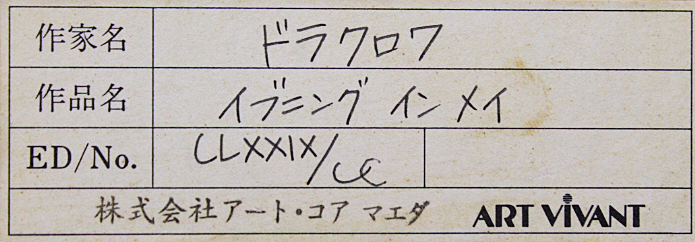 作家名 ドラクロワ
作品名 イブニング イン メイ
ED/No. CLXXIX/CC
株式会社アート・コア マエダ ART VIVANT